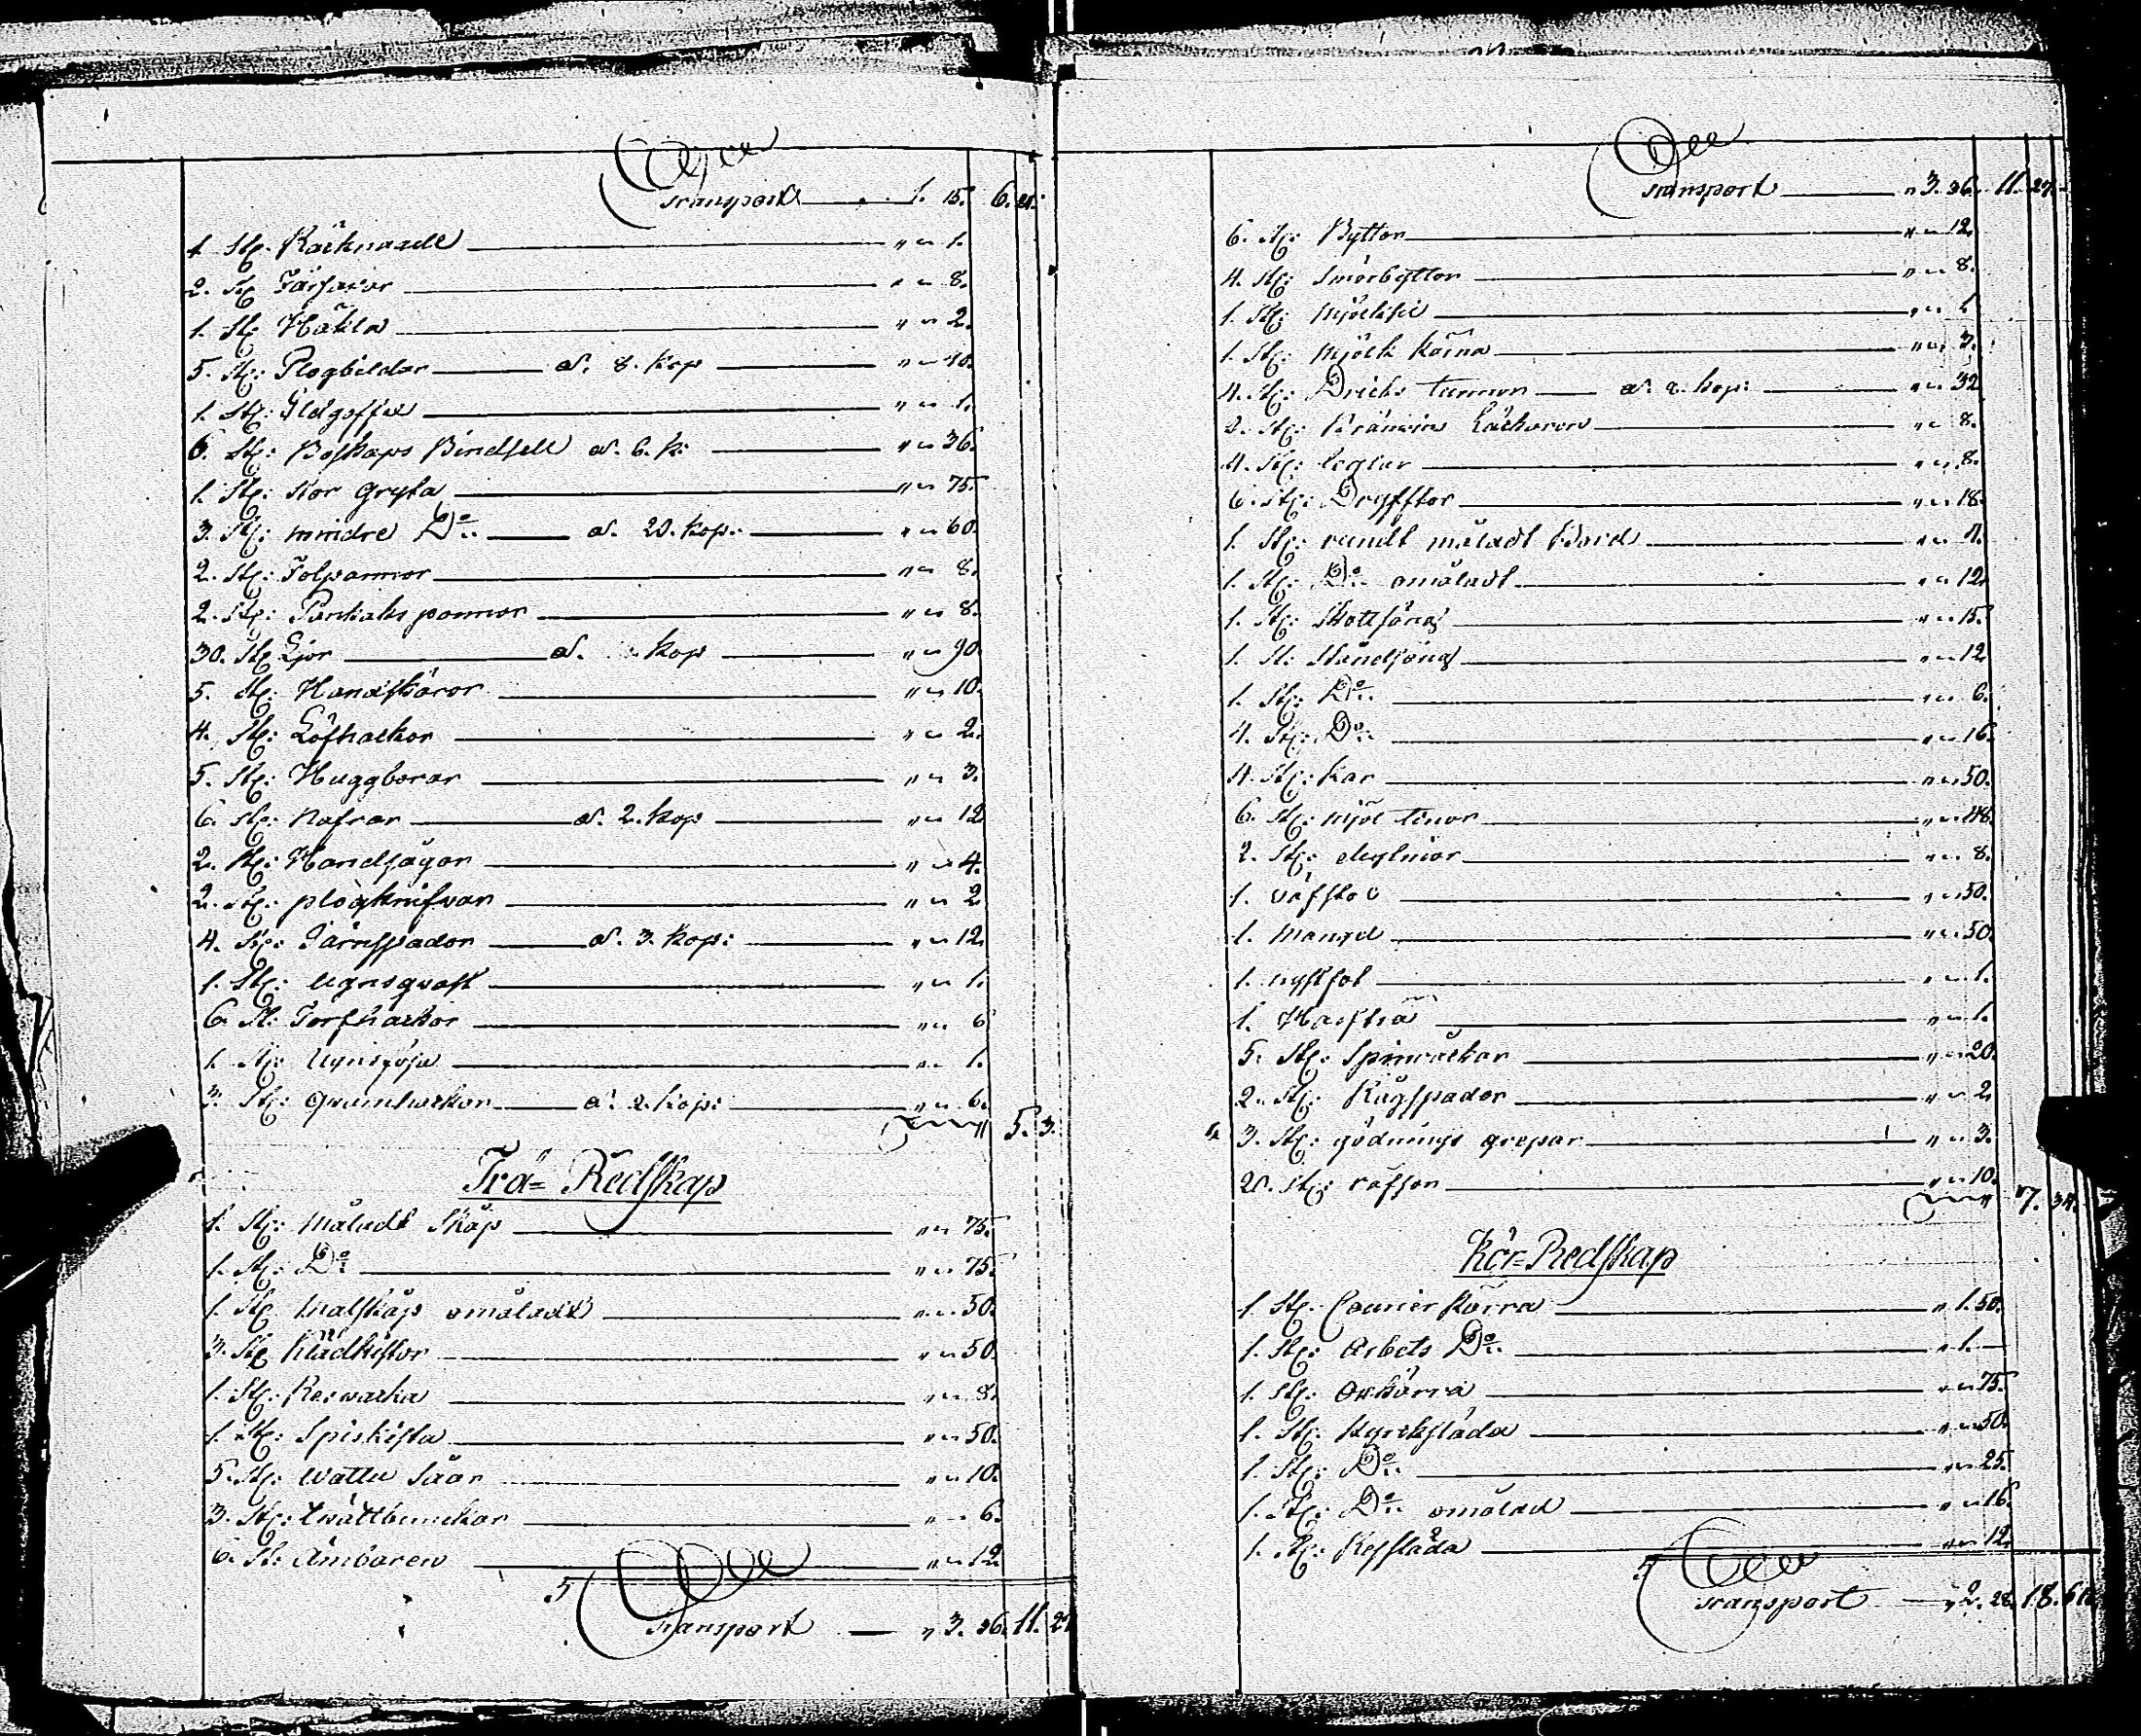 Transport 1. 15. 6. 21.
1 St: Räcknaale " " 1.
2. St: Fårsaxar " " 8.
1. St: Häkla " " 2.
5. St: Plogbildar a. 8. kop " " 40.
1. St: Eldgaffel " " 1.
6. St: Boskaps Bindsell a. 6. k: " " 36.
1. St: stor gryta " " 75.
3. St: mindre Do a. 20. kop: " " 60.
2. St: Folpannor " " 8.
2. St: Pankaks pannor " " 8.
30. St: Ljor a. kop " " 90.
5. St: Handskäror " " 10.
4. St: Löfhackor " " 2.
5. St: Huggborar " " 3.
6. St: Nafrar a. 2. kop " " 12
2. St: Handsågar " " 4.
2. St: plogknifvar " " 2
4. St: Järnspador a. 3. kop: " " 12
1. St: ugnsqvast " " 1.
6. St: Torfhackor " " 6
1. St: Ugns " " 1.
3. St: a. 2. kop: " " 6.
5. 3.
Trä= Redskap
1. St: Måladt Skåp " " 75.
1. St: Do " " 75.
1. St: Matskåp omåladt " " 50.
3. St: Klädkistor " " 50.
1. St: " " 8.
1. St: Spiskista " " 50.
5. St: Såar " " 10.
3. St: tvättbunckar " " 6.
6. St: Ämbaren " " 12
5
Transport " 3. 36. 11. 27
Transport " 3. 36. 11. 27.
6. St: Byttor " " 12.
4. St: Smörbyttor " " 8.
1. St: Mjölksil " " 1
1. St: Mjölk kärna " " 3.
4. St: Dricks tunnor a. 8. kop: " " 32
2. St: Bränvins " " 8.
4. St: leglar " " 8.
6. St: " " 18.
1. St: rundt måladt Bord " " 4.
1. St: Do omåladt " " 12.
1. St: Skottsäng " " 15.
1. St: Ståndsäng " " 12
1. St: Do " " 6.
4. St: Do " " 16.
4. St: kar " " 50.
6. St: mjöl tinor " " 48.
2. St: " " 8.
1. väfstol " " 50.
1. Mangel " " 50.
1. nystfot " " 1.
1. Harfträ " " 1.
5. St: Spinråckar " " 20.
2. St: Rågspador " " 2
3. St: gödnings grepar " " 3.
20. St: räffsor " " 10.
7. 34.
Kör=Redskap
1. St: Courier kärra " 1. 50.
1. St: Arbets Do " 1. —
1. St: Oxkärra " " 75.
1. St: Kyrksläda " " 50.
1. St: Do " " 25.
1. St: Do omålad " " 16.
1. St: Ressläda " " 12.
5
Transport " 2. 28. 18. 61